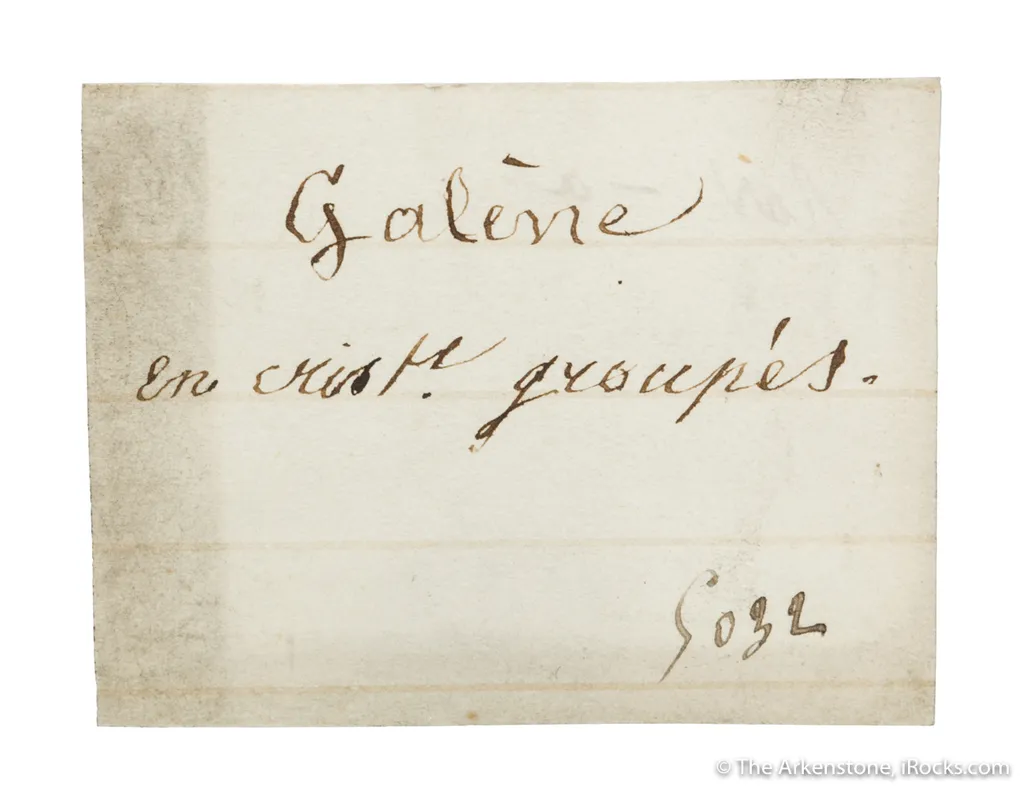 Galène
en crist. groupés.
5032
© The Arkenstone, iRocks.com